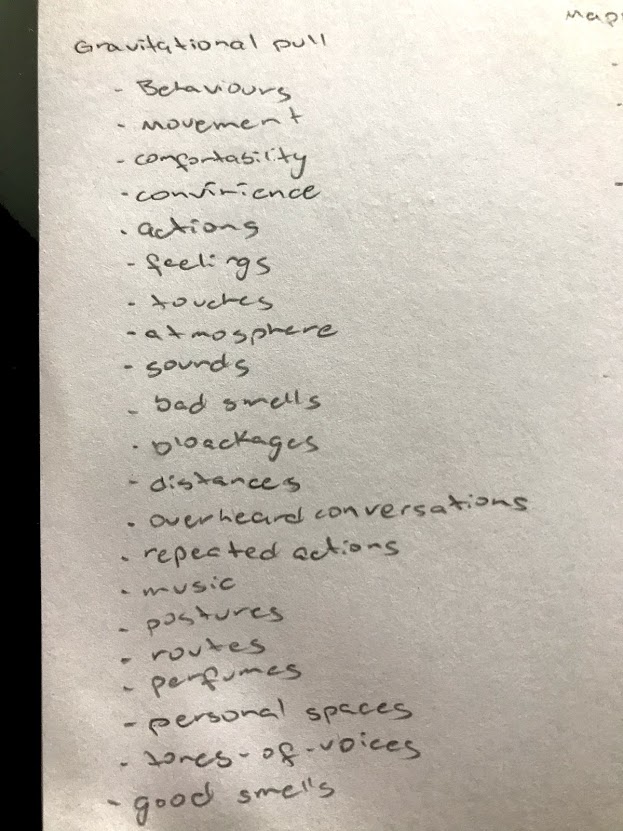 Mapp
Gravitational pull
- Behaviours
- movement
- comfortability
- convinience
- actions
- feelings
- touches
- atmosphere
- sounds
- bad smells
- bloackages
- distances
- overheard conversations
- repeated actions
- music
- postures
- routes
- perfumes
- personal spaces
- tones-of-voices
- good smells